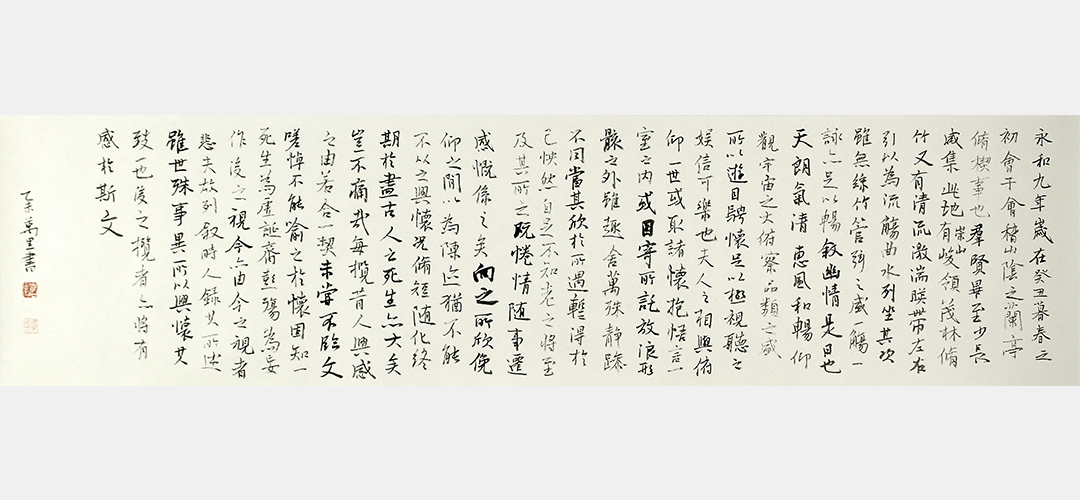 永和九年歲在癸丑暮春之
初會于會稽山陰之蘭亭
脩稧事也羣賢畢至少長
咸集此地有崇山峻領茂林脩
竹又有清流激湍暎帶左右
引以為流觴曲水列坐其次
雖無絲竹管弦之盛一觴一
詠亦足以暢敘幽情是日也
天朗氣清惠風和暢仰
觀宇宙之大俯察品類之盛
所以遊目騁懷足以極視聽之
娛信可樂也夫人之相與俯
仰一世或取諸懷抱悟言一
室之內或因寄所託放浪形
骸之外雖趣舍萬殊靜躁
不同當其欣於所遇暫得於
己怏然自足不知老之將至
及其所之既惓情隨事遷
感慨係之矣向之所欣俛
仰之間以為陳迹猶不能
不以之興懷況脩短隨化終
期於盡古人云死生亦大矣
豈不痛哉每攬昔人興感
之由若合一契未嘗不臨文
嗟悼不能喻之於懷固知一
死生為虛誕齊彭殤為妄
作後之視今亦由今之視者
悲夫故列敘時人錄其所述
雖世殊事異所以興懷其
致一也後之攬者亦將有
感於斯文
萬里書